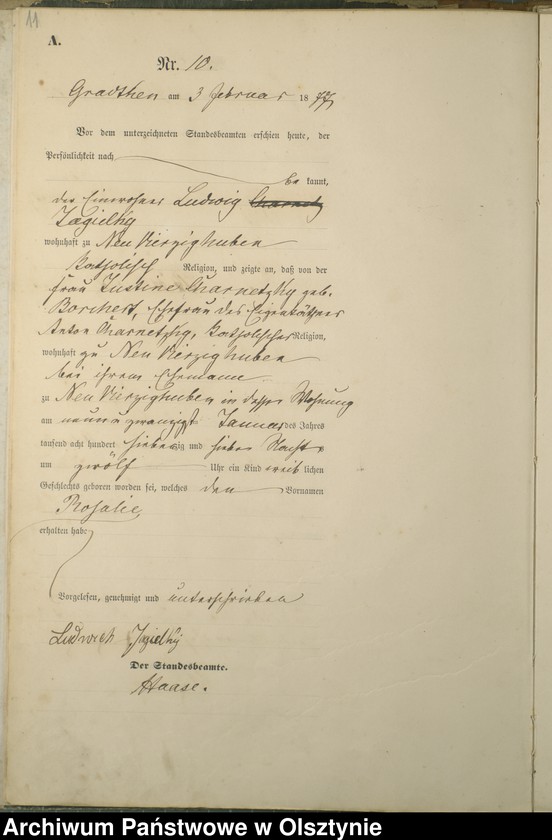 11
A.
Nr. 10.
Gradtken am 3 Februar 1877
Vor dem unterzeichneten Standesbeamten erschien heute, der
Persönlichkeit nach
be kannt,
der Einwohner Ludwig Charnetzky
Jagielky
wohnhaft zu Neu Vierzighuben
katholisch Religion, und zeigte an, daß von der
Frau Justine Charnetzky geb.
Borchert, Ehefrau des Eigenthümers
Anton Charnetzky, katholischer Religion,
wohnhaft zu Neu Vierzighuben
bei ihrem Ehemanne
zu Neu Vierzighuben in dessen Wohnung
am neunundzwanzigsten Januar des Jahres
tausend acht hundert siebenzig und sieben Nachts
um zwölf Uhr ein Kind weib lichen
Geschlechts geboren worden sei, welches den Vornamen
Rosalie
erhalten habe
Vorgelesen, genehmigt und unterschrieben
Ludwich Jagielky
Der Standesbeamte.
Haase.
Archiwum Państwowe w Olsztynie